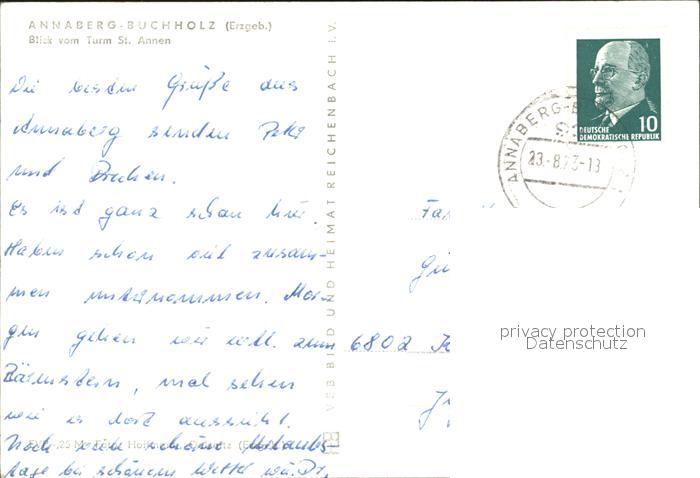 ANNABERG-BUCHHOLZ (Erzgeb.)
Blick vom Turm St. Annen
Die besten Grüße aus
Annaberg senden Peter
und
Es ist ganz schön hier.
Haben schon viel zusam-
men unternommen. Mor-
gen gehen wir evtl. zum
Bärenstein, mal sehen
wie es dort aussieht.
Noch schöne Urlaubs-
tage bei schönem Wetter
VEB BILD UND HEIMAT REICHENBACH I. V.
DEUTSCHE
DEMOKRATISCHE REPUBLIK
10
ANNABERG-B
23.-8.73-13
6802
privacy protection
Datenschutz